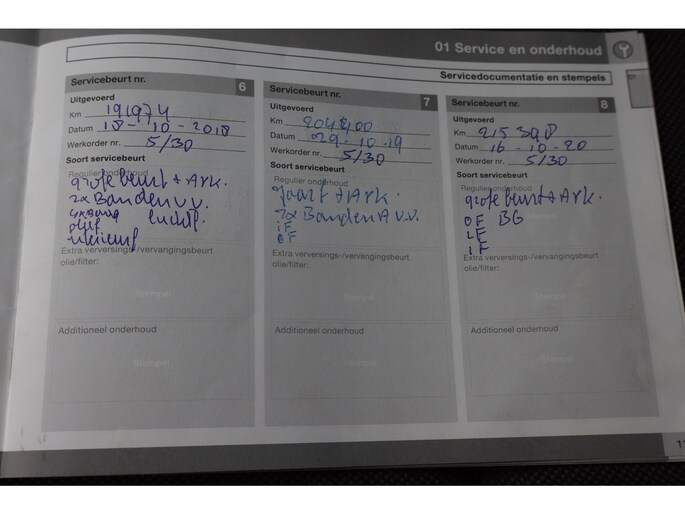 01 Service en onderhoud
Servicedocumentatie en stempels
01
Servicebeurt nr. 6
Uitgevoerd
Km 191974
Datum 18-10-2018
Werkorder nr. 5/30
Soort servicebeurt
Regulier onderhoud
grote beurt + Ark.
2x Banden v.v.
Extra verversings-/vervangingsbeurt
olie/filter:
Stempel
Additioneel onderhoud
Stempel
Servicebeurt nr. 7
Uitgevoerd
Km 204400
Datum 029.10.19
Werkorder nr. 5/30
Soort servicebeurt
Regulier onderhoud
+ Ark.
2x Banden A v.v.
iF
Extra verversings-/vervangingsbeurt
olie/filter:
Stempel
Additioneel onderhoud
Stempel
Servicebeurt nr. 8
Uitgevoerd
Km 215398
Datum 16-10-20
Werkorder nr. 5/30
Soort servicebeurt
Regulier onderhoud
grote beurt + Ark.
OF BG
LF
iF
Extra verversings-/vervangingsbeurt
olie/filter:
Stempel
Additioneel onderhoud
Stempel